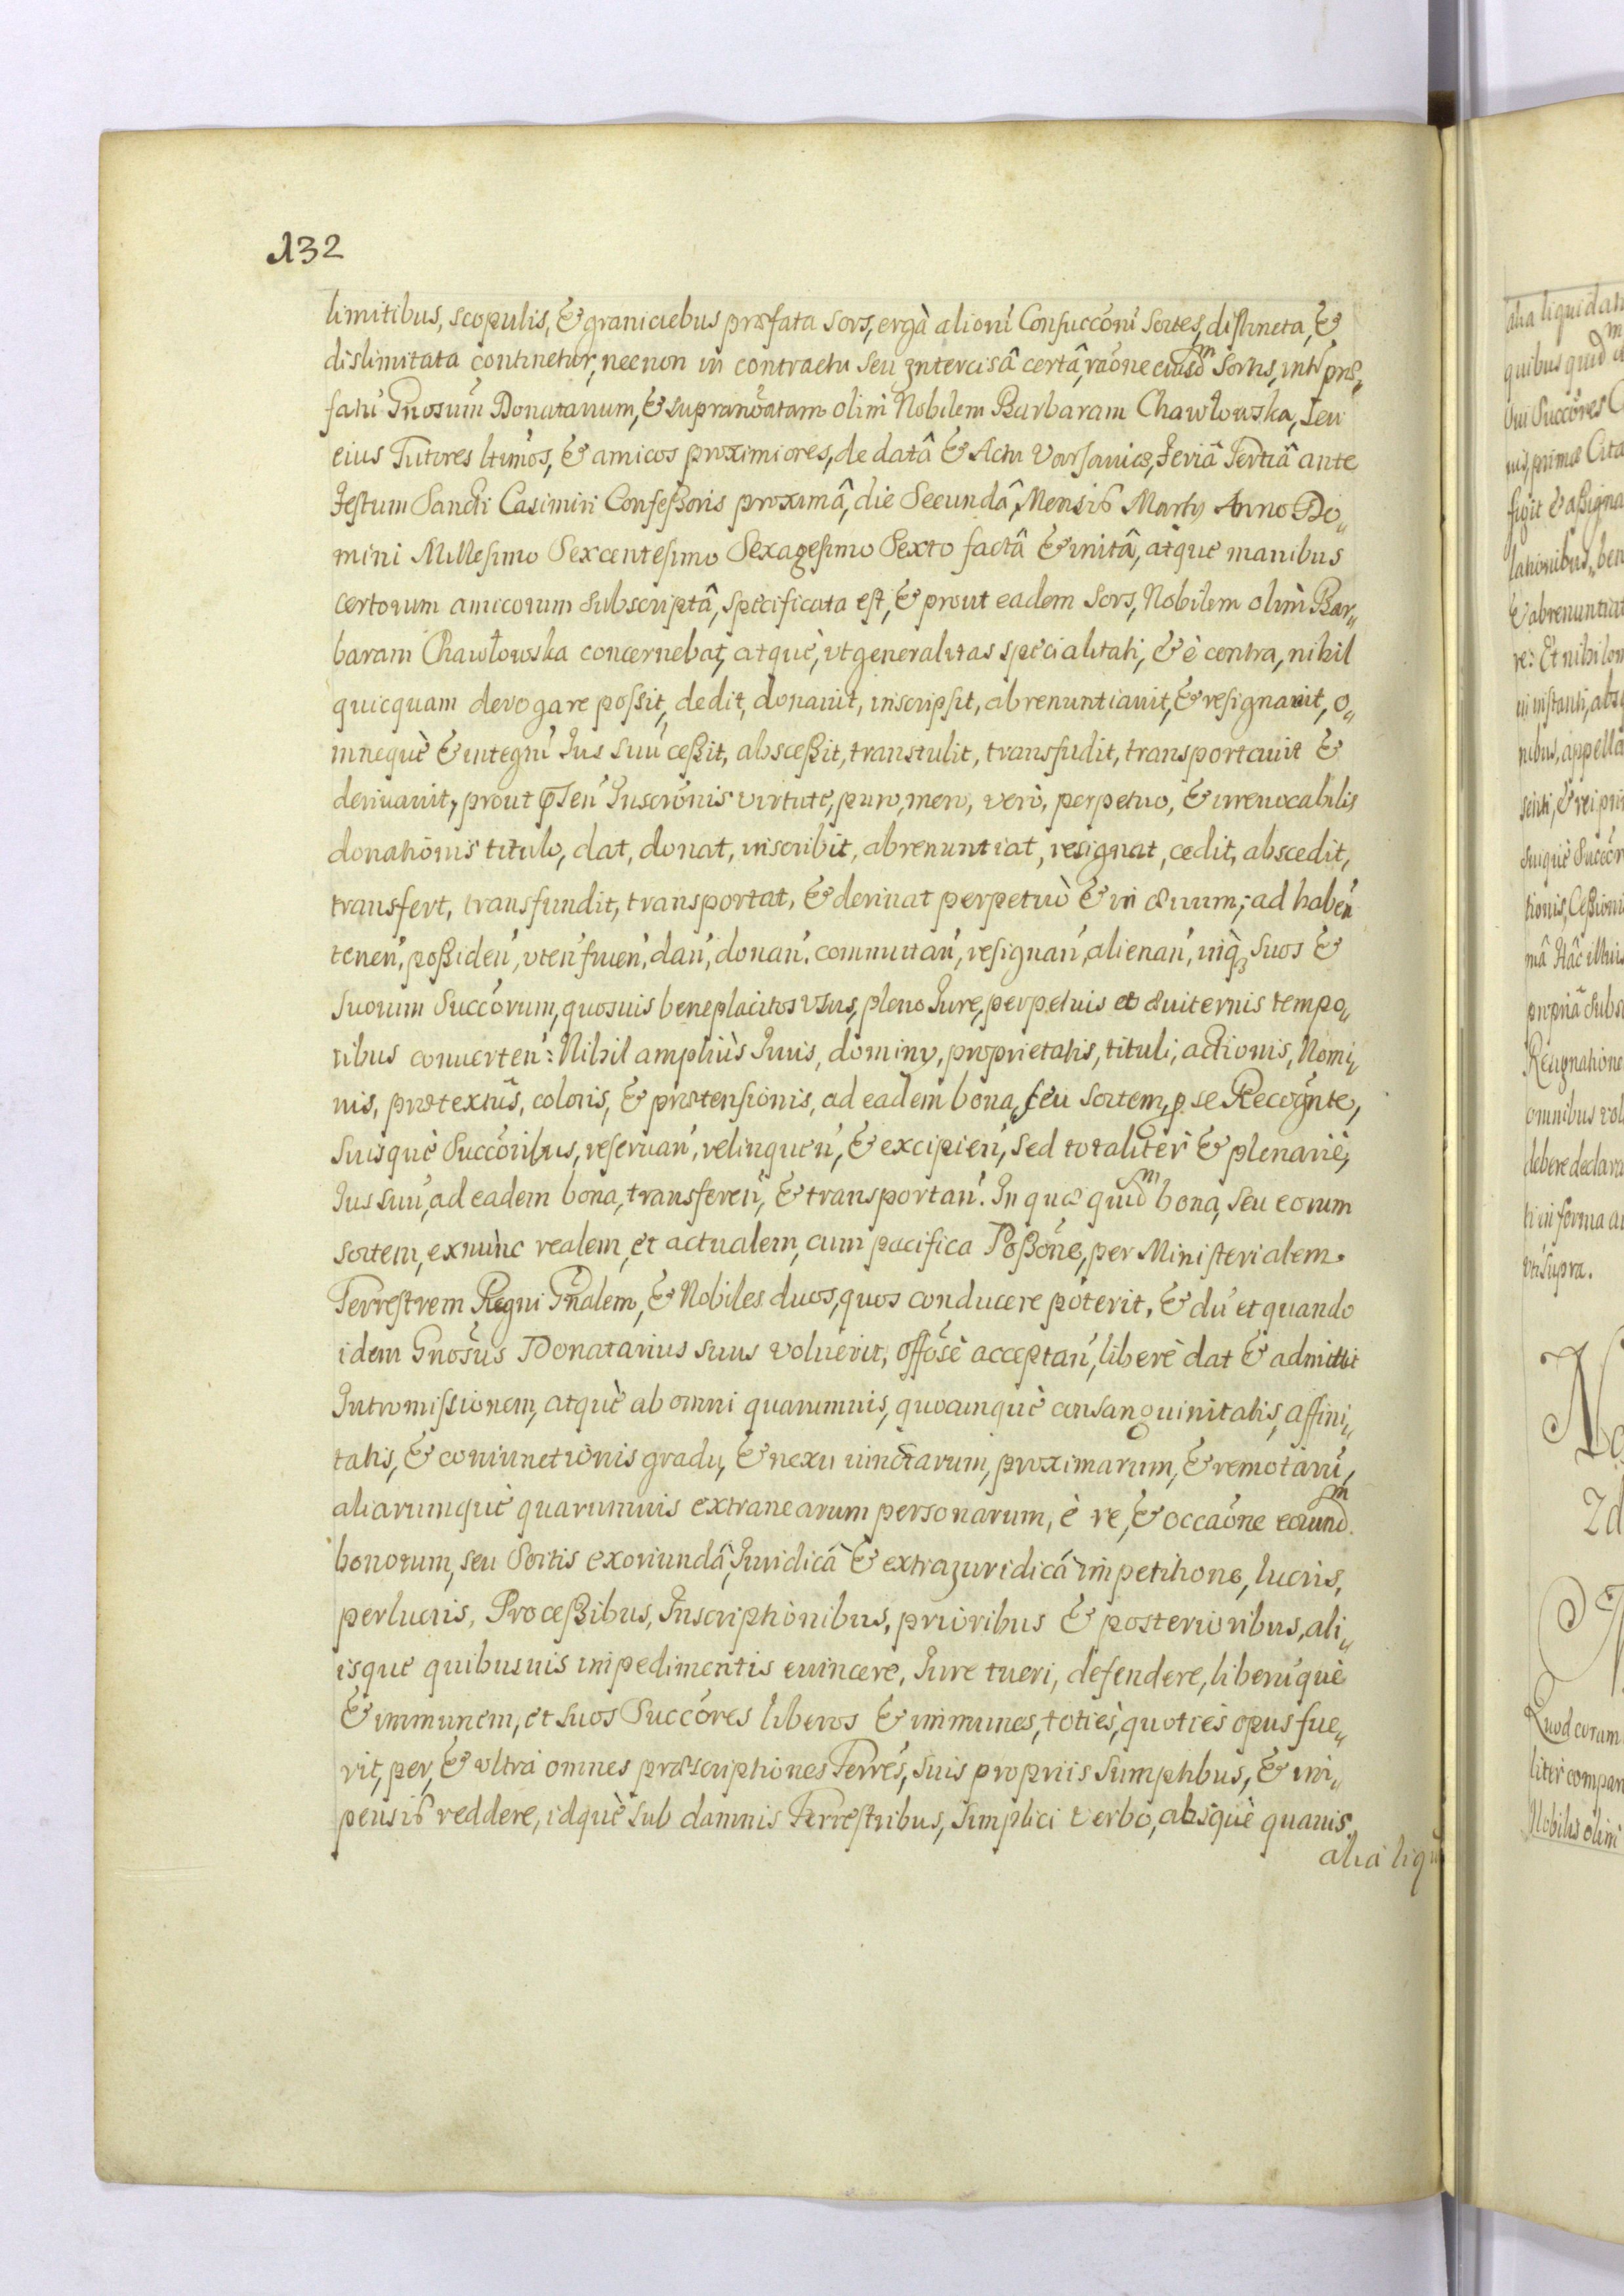 132
limitibus, scopulis, & graniciebus præfata sors, ergà alionĩ Consuccorũ sortes, distincta, &
dislimitata continetur, necnon in contractu seu Intercisâ certâ, raõne eiusdm sortis, intr præ„
fatũ Gnosum Donatarium, & supranõatam olim Nobilem Barbaram Chawłowska, seu
eius Tutores ltimos, & amicos proximiores, de datâ & Actu Varsauiæ, Feriâ Tertiâ ante
Festum Sancti Casimiri Confeßoris proximâ, die Secundâ, Mensis Martij Anno Do„
mini Millesimo Sexcentesimo Sexagesimo Sexto factâ & initâ, atque manibus
certorum amicorum subscriptâ, specificata est, & prout eadem sors, Nobilem olim Bar„
baram Chawłowska concernebat, atquè, vt generalitas specialitati, & è contra, nihil
quicquam derogare possit, dedit, donauit, inscripsit, abrenuntiauit, & resignauit, o„
mnequè & integrũ Jus suũ ceßit, absceßit, transtulit, transfudit, transportauit &
deriuauit, prout pñseñ Inscrõnis virtute, puro, mero, verò, perpetuo, & irreuocabilis
donationis titulo, dat, donat, inscribit, abrenuntiat, resignat, cedit, abscedit,
transfert, transfundit, transportat, & deriuat perpetuò & in æuum; ad habeń
teneń, poßideń, vteń fruen, dań, donań, commutań, resignań, alienań, inq3 suos &
suorum Succorum, quosuis beneplacitos vsus, pleno Jure, perpetuis et æuiternis tempo„
ribus conuerteń: Nihil ampliùs Juris, dominy, proprietatis, tituli, actionis, Nomi„
nis, prætextũs, coloris, & prætensionis, ad eadem bona, seu sortem, p se Recognte,
suisquè Succoribus, reseruań, relinqueń, & excipień, sed totaliter & plenariè,
Jus suũ, ad eadem bona, transfereń, & transportań. In quæ quidm bona, seu eorum
sortem, exnùnc realem, et actualem, cum pacifica Poßone, per Ministerialem
Terrestrem Regni Gñalem, & Nobiles duos, quos conducere poterit, & dũ et quando
idem Gnosus Donatarius suus voluerit, offosè acceptań, liberè dat & admittit
Intromissionem, atquè ab omni quarumuis, quocunquè consanguinitatis, affini„
tatis, & coniunctionis gradu, & nexu iunctarum, proximarum, & remotarũ,
aliarumquè quarumuis extranearum personarum, è re, & occaõne eorundm
bonorum, seu Sortis exoriundâ, Juridicâ & extraJuridicâ impetitione, lucris,
perlucris, Proceßibus, Inscriptionibus, prioribus & posterioribus, ali„
isque quibusuis impedimentis euincere, Jure tueri, defendere, liberũquè
& immunem, et suos Succores liberos & immunes, totiès, quotiès opus fue„
rit, per, & vltra omnes præscriptiones Terres, suis propriis sumptibus, & im„
pensis reddere, idquè sub damnis Terrestribus, simplici verbo, absquè quauis
alia liqu